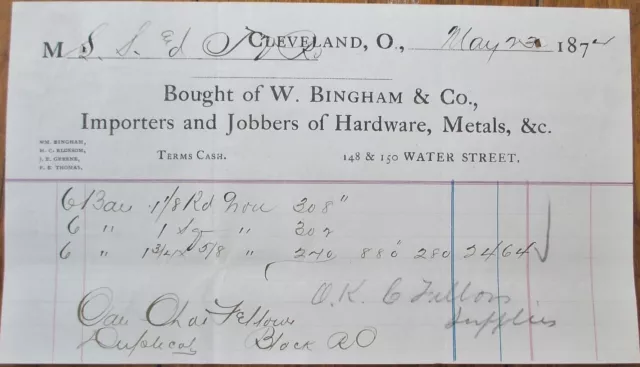 M S. S. & Ry Co CLEVELAND, O., May 23 1874
Bought of W. BINGHAM & Co.,
Importers and Jobbers of Hardware, Metals, &c.
WM. BINGHAM,
H. C. BLOSSOM,
J. E. GREENE,
F. E. THOMAS,
TERMS CASH. 148 & 150 WATER STREET.
6 Bars 1 1/8 Rd Iron 308"
6 " 1 Sq " 302
6 " 1 3/4 x 5/8 " 270 880 280 24 64
O.K. C Fellows
Supplies
Care Chas Fellows
Duplicate Black RO